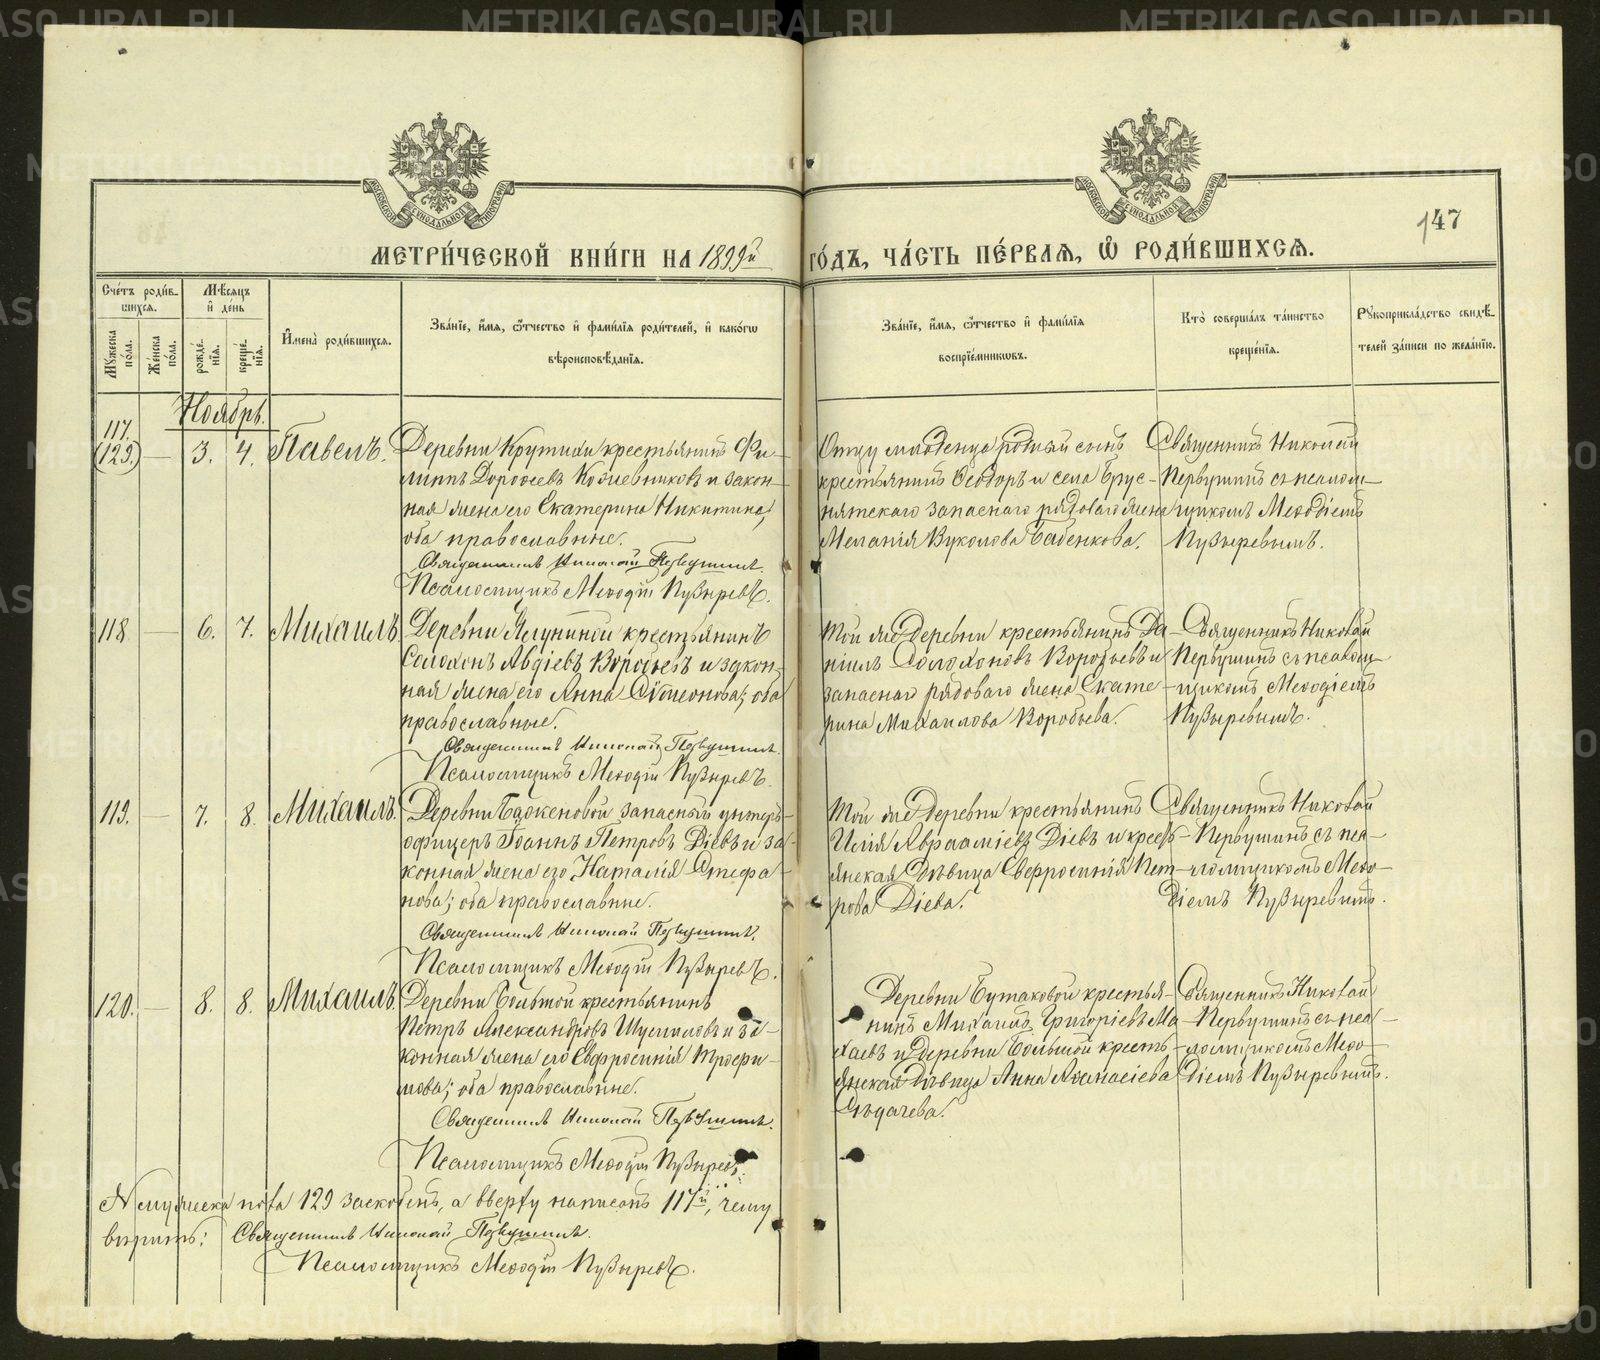 METRIKI.GASO-URAL.RU
147
МЕТРИ́ЧЕСКОЙ КНИ́ГИ НА 1899й ГО́ДЪ, ЧА́СТЬ ПЕ́РВАЯ, Ѡ РОДИ́ВШИХСЯ.
Сче́тъ роди́в-
шихся.
Мѣ́сяцъ
и̂ де́нь
Мꙋ́жеска по́ла.
Же́нска по́ла.
рожде́-
нїя.
креще́-
нїя.
И̂мена̀ роди́вшихся.
Зва́нїе, и̂́мя, ѻ҆́тчество и҆ фами́лїя роди́телей, и҆ како́гѡ
вѣроисповѣ́данїя.
Зва́нїе, и҆́мя, ѻ҆́тчество и҆ фами́лїя
воспрїе́мникѡвъ.
Кто̀ соверша́лъ та́инство
креще́нїя.
Рꙋкоприкла́дство свидѣ́-
телей за́писи по жела́нїю.
Ноябрь.
117.
(129.) — 3. 4. Павелъ.
Деревни Крутихи крестьянинъ Фи-
липпъ Дорофеевъ Кожевниковъ и закон-
ная жена его Екатерина Никитина;
оба православные.
Священникъ Николай Первушинъ.
Псаломщикъ Меѳодій Пузыревъ.
Отцу младенца родный сынъ
крестьянинъ Ѳеодоръ и села Брус-
нятскаго запаснаго рядоваго жена
Меланія Вуколова Бабенкова.
Священникъ Николай
Первушинъ съ псалом-
щикомъ Меѳодіемъ
Пузыревымъ.
118 — 6. 7. Михаилъ
Деревни Ялуниной крестьянинъ
Соломонъ Авдіевъ Воробьевъ и закон-
ная жена его Анна Сѵмеонова; оба
православные.
Священникъ Николай Первушинъ.
Псаломщикъ Меѳодій Пузыревъ.
Той же деревни крестьянинъ Да-
ніилъ Соломоновъ Воробьевъ и
запаснаго рядоваго жена Екате-
рина Михаилова Воробьева.
Священникъ Николай
Первушинъ съ псалом-
щикомъ Меѳодіемъ
Пузыревымъ.
119. — 7. 8. Михаилъ.
Деревни запасный унтеръ-
офицеръ Іоаннъ Петровъ Діевъ и за-
конная жена его Наталія Стефа-
нова; оба православные.
Священникъ Николай Первушинъ.
Псаломщикъ Меѳодій Пузыревъ.
Той же деревни крестьянинъ
Илія Авраамiевъ Діевъ и кресть-
янская дѣвица Евфросинія Пет-
рова Діева.
Священникъ Николай
Первушинъ съ пса-
ломщикомъ Меѳо-
діемъ Пузыревымъ.
120. — 8. 8. Михаилъ.
Деревни Большой крестьянинъ
Петръ Александровъ Шумиловъ и за-
конная жена его Евфросинія Трофи-
мова; оба православные.
Священникъ Николай Первушинъ.
Псаломщикъ Меѳодій Пузыревъ.
Деревни Бутаковой крестья-
нинъ Михаилъ Григоріевъ Ма-
хаевъ и деревни Большой кресть-
янская дѣвица Анна Аѳанасіева
Сѣдачева.
Священникъ Николай
Первушинъ съ пса-
ломщикомъ Меѳо-
діемъ Пузыревымъ.
№ мужеска пола 129 заскобленъ, а вверху написанъ 117й, чему
вѣрить: Священникъ Николай Первушинъ.
Псаломщикъ Меѳодій Пузыревъ.